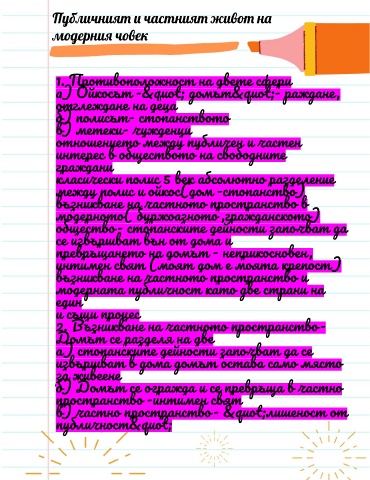 Публичният и частният живот на
модерния човек
1. Противоположност на двете сфери
а) Ойкосът -&quot; домът&quot;- раждане,
отглеждане на деца
б) полисът- стопанството
в) метеки- чужденци
отношението между публичен и частен
интерес в обществото на свободните
граждани
класически полис 5 век абсолютно разделение
между полис и ойкос( дом -стопанство)
възникване на частното пространство в
модерното( буржоазното ,гражданското)
общество- стопанските дейности започват да
се извършват вън от дома и
превръщането на домът - неприкосновен,
интимен свят (моят дом е моята крепост)
възникване на частното пространство и
модерната публичност като две страни на
един
и същи процес
2. Възникване на частното пространство-
Домът се разделя на две
а) стопанските дейности започват да се
извършват в дома домът остава само място
за живеене
б) Домът се огражда и се превръща в частно
пространство -интимен свят
в) частно пространство- &quot;лишеност от
публичност&quot;